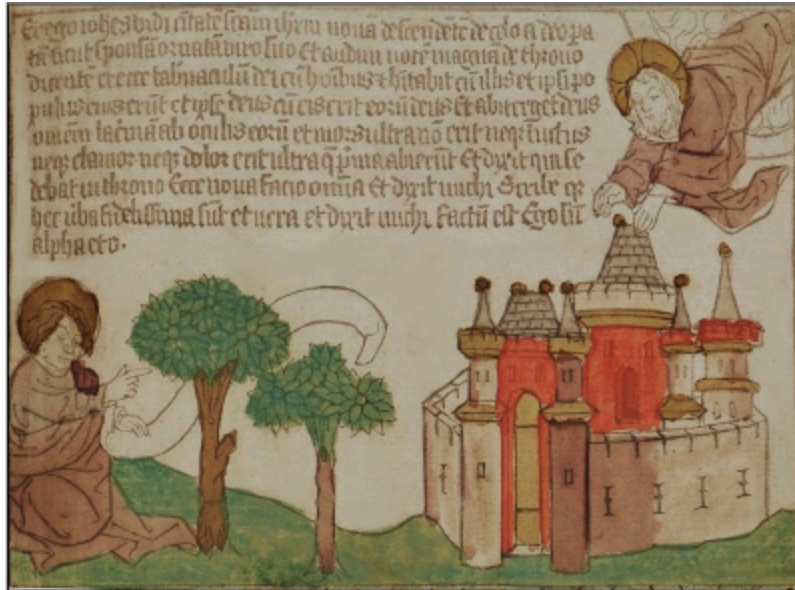 Et ego iohes vidi ciitatē sctam ihrlm novā descendētē de celo a deo pa
tā sicut sponsā ornatā viro suo Et audivi vocē magnā de throno
dicentē ecce tabnaculū dei cū hoibus et hitabit cū illis et ipsi po
pulus eius erūt et ipse deus cū eis erit eorū deus Et absterget deus
omnem lacrimā ab oculis eorū et mors ultra nō erit neqz luctus
neqz clamor neqz dolor erit ultra q prima abierūt Et dixit qui se
debat in throno Ecce nova facio omnia Et dixit michi Scribe qz
hec vba fidelissima sūt et vera et dixit michi Factū est Ego sū
alpha et o.